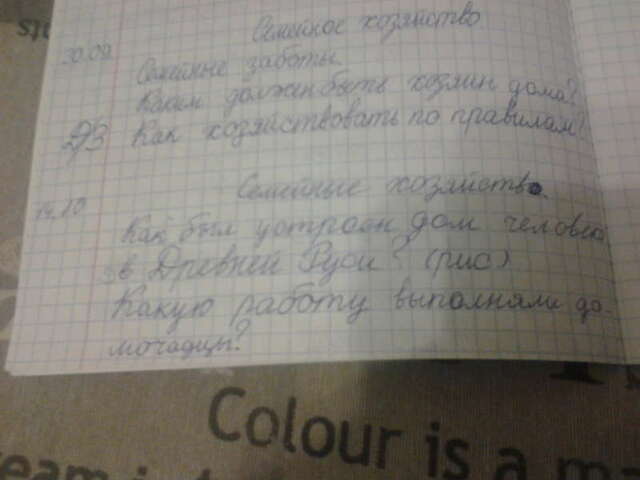 Семейное хозяйство
30.09.
Семейные заботы.
Каким должен быть хозяин дома?
Д/З Как хозяйствовать по правилам?
Семейные хозяйство.
14.10
Как был устроен дом человека
в Древней Руси? (рис)
Какую работу выполняли до-
мочадцы?
Colour is a ma
eam